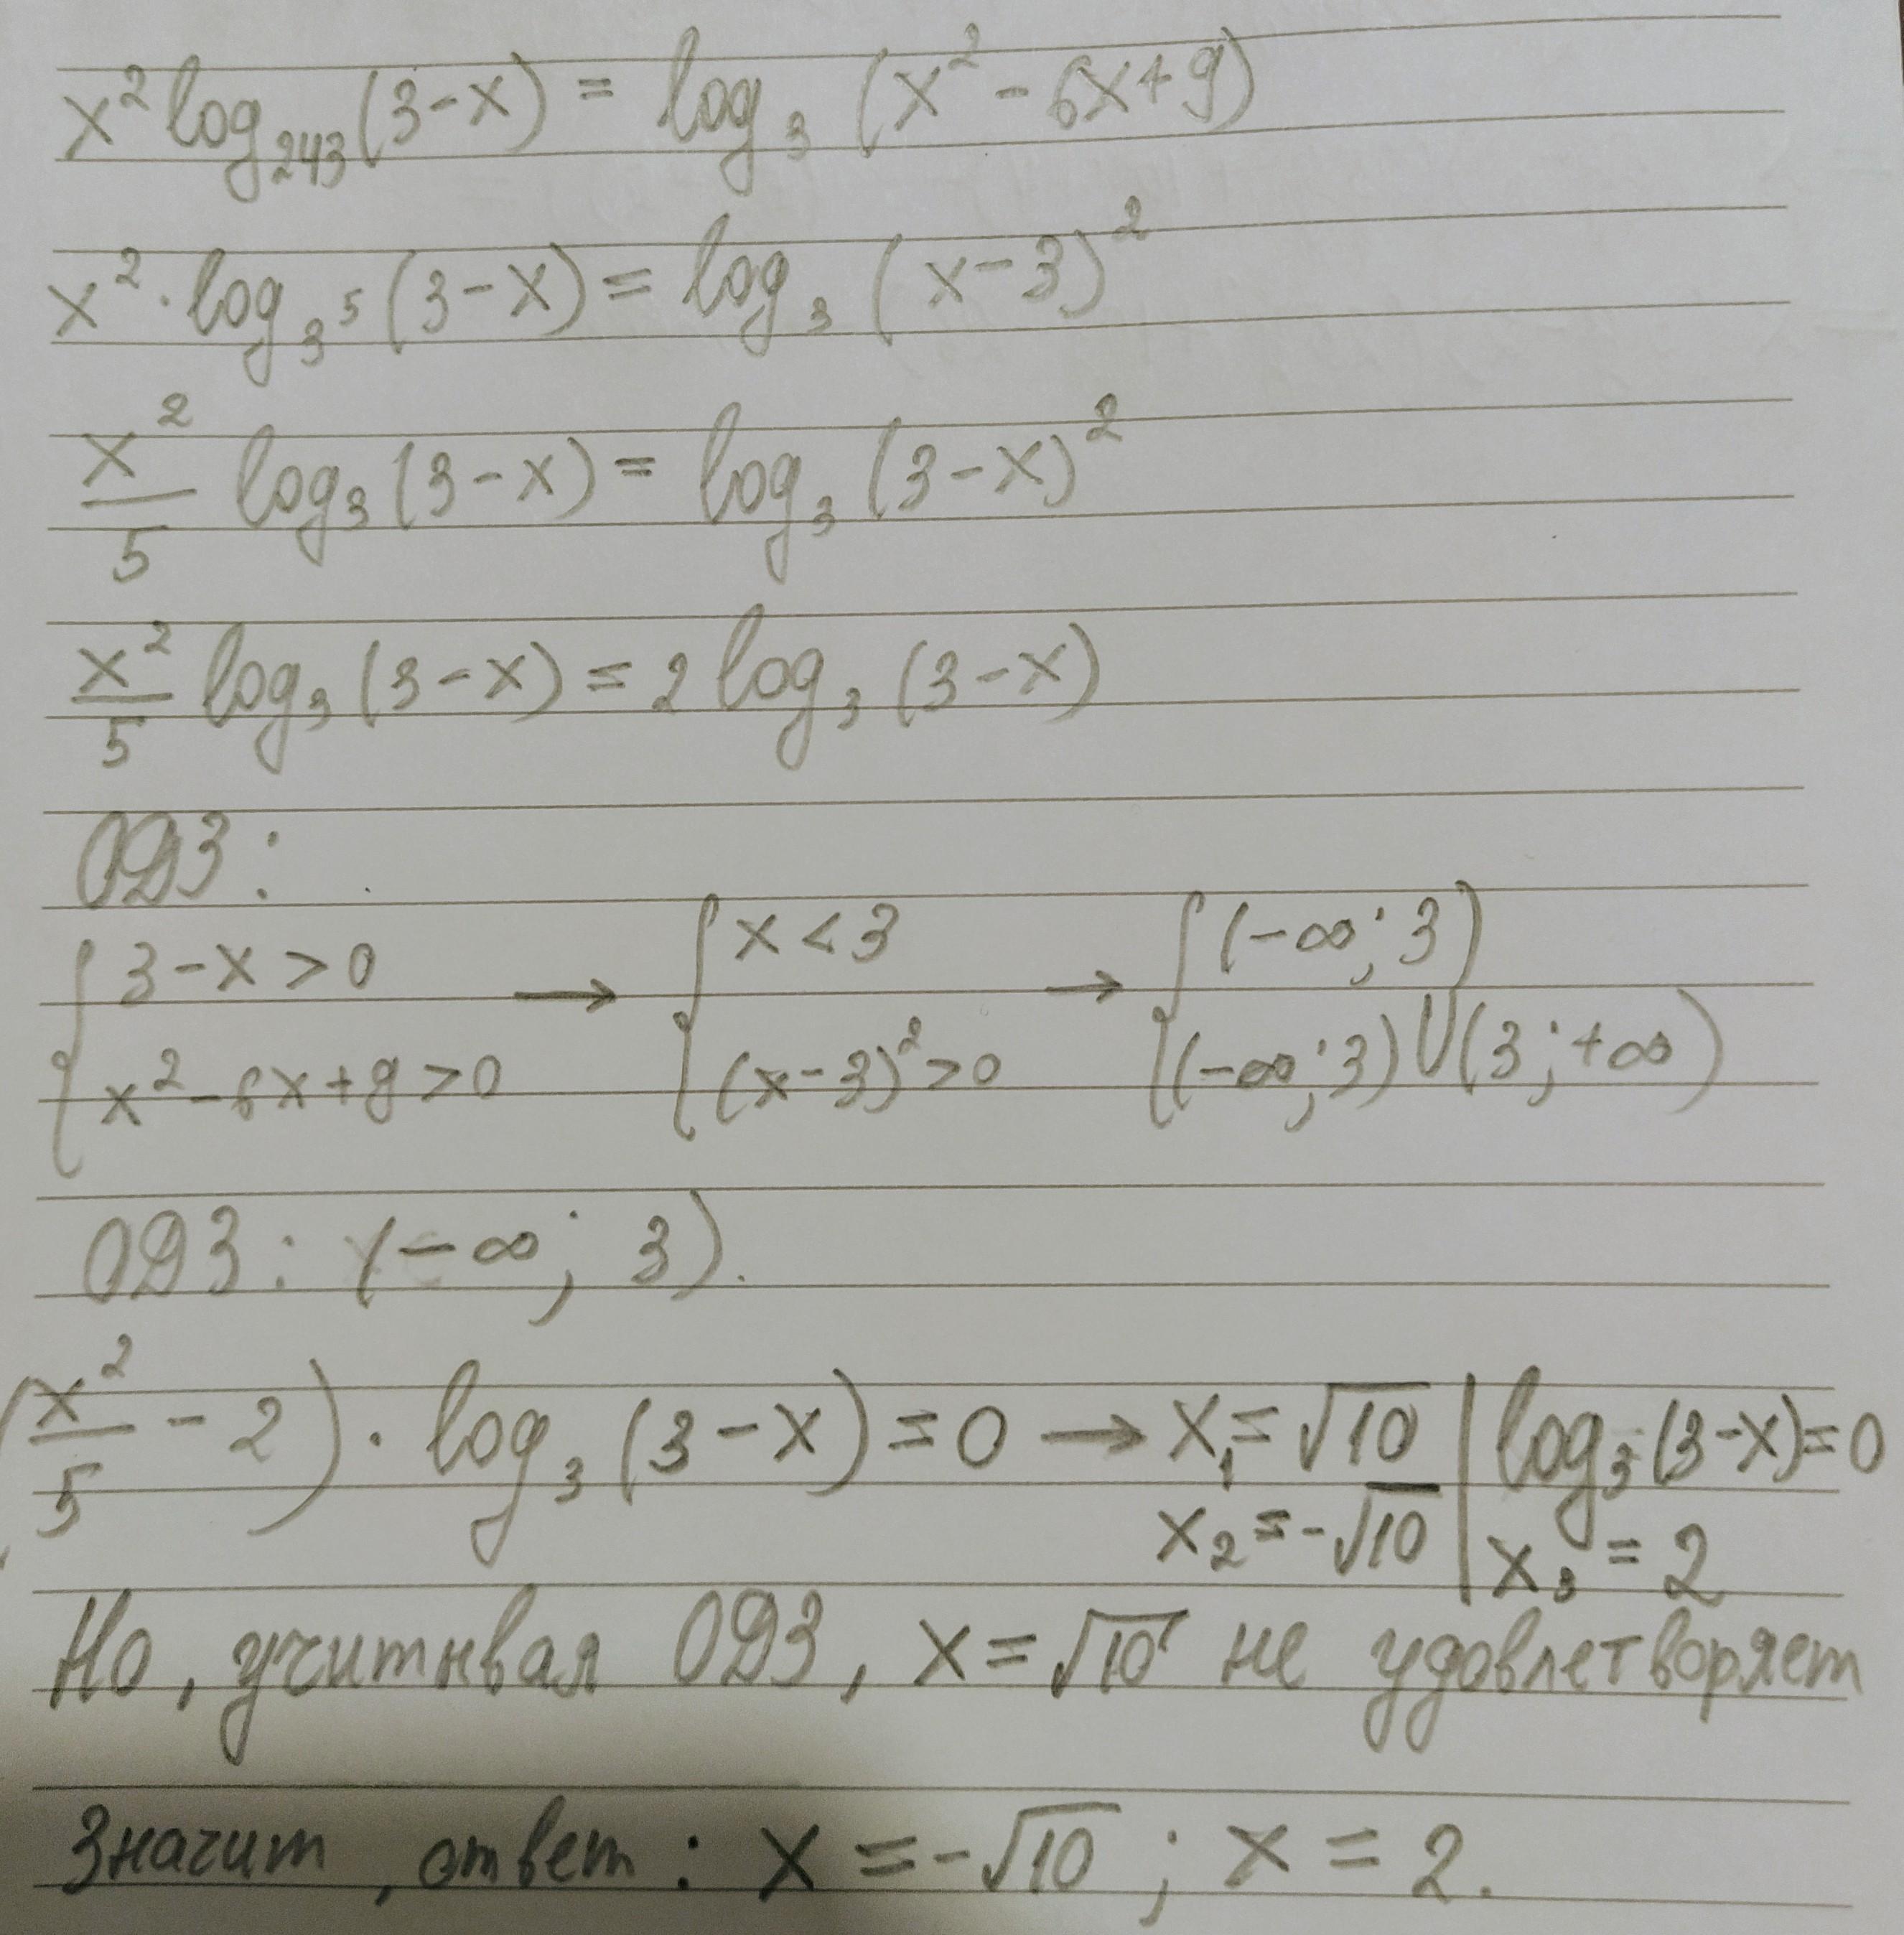 x² log₂₄₃(3-x) = log₃ (x² - 6x+9)
x² · log₃⁵ (3-x) = log₃ (x-3)²
x²/5 log₃ (3-x) = log₃ (3-x)²
x²/5 log₃ (3-x) = 2 log₃ (3-x)
ОДЗ:
{ 3-x > 0 → { x < 3 → { (-∞; 3)
{ x² - 6x + 9 > 0 { (x-3)² > 0 { (-∞; 3) ∪ (3; +∞)
ОДЗ: (-∞; 3).
(x²/5 - 2) · log₃ (3-x) = 0 → x₁ = √10 | log₃ (3-x) = 0
x₂ = -√10 | x₃ = 2
Но, учитывая ОДЗ, x = √10 не удовлетворяет
Значит, ответ: x = -√10 ; x = 2.